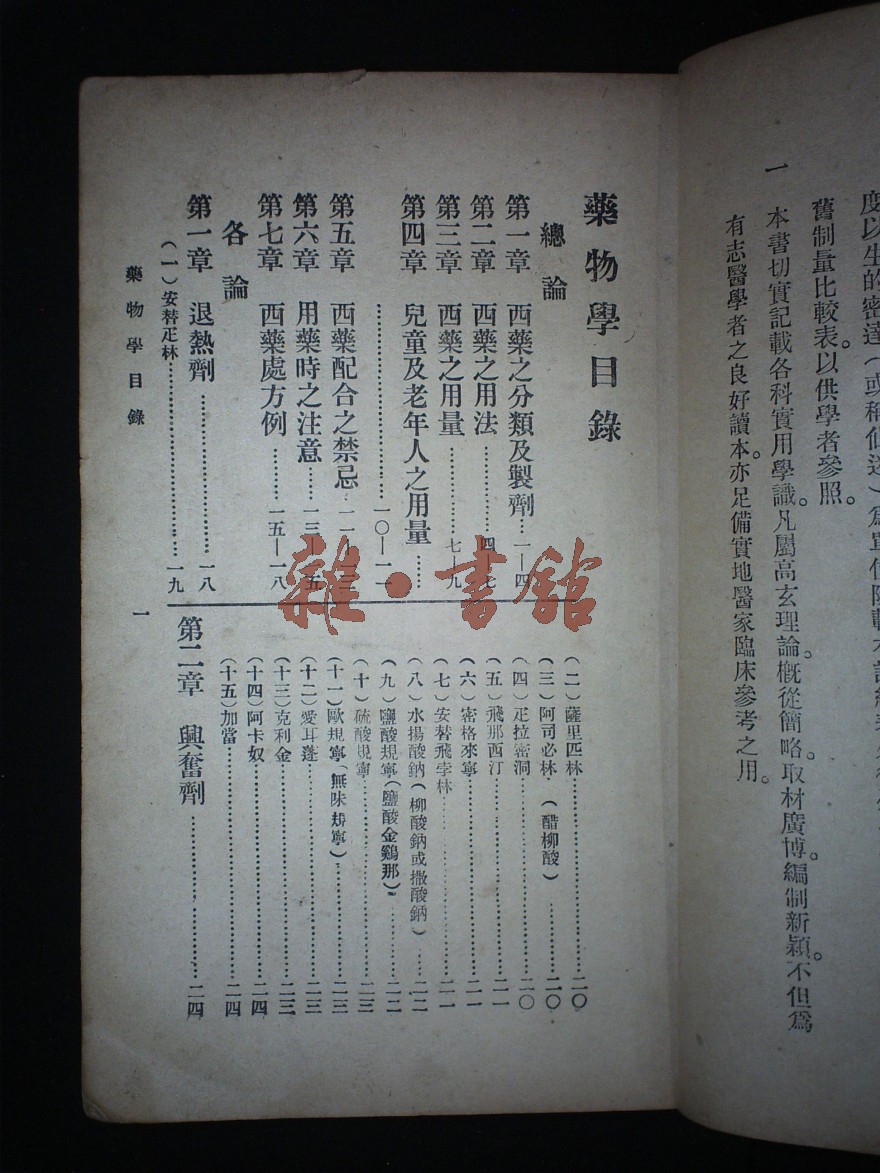 舊制量比較表。以供學者參照。
一 本書切實記載各科實用學識。凡屬高玄理論。概從簡略。取材廣博。編制新穎。不但爲
有志醫學者之良好讀本。亦足備實地醫家臨床參考之用。
藥物學目錄
總論
第一章 西藥之分類及製劑…一—四
第二章 西藥之用法…………四—七
第三章 西藥之用量…………七—九
第四章 兒童及老年人之用量……
……………………一〇—一一
第五章 西藥配合之禁忌…一一—一三
第六章 用藥時之注意……一三—一五
第七章 西藥處方例………一五—一八
各論
第一章 退熱劑…………………一八
(一)安替疋林…………………一九
(二)薩里匹林…………………二〇
(三)阿司必林.(醋柳酸)………二〇
(四)疋拉密洞…………………二〇
(五)飛那西汀…………………二一
(六)密格來寧…………………二一
(七)安替飛孛林………………二一
(八)水揚酸鈉(柳酸鈉或撒酸鈉)…二二
(九)鹽酸規寧(鹽酸金鷄那)………二二
(十)硫酸規寧…………………二三
(十一)歐規寧(無味規寧)………二三
(十二)愛耳蓬…………………二三
(十三)克利金…………………二三
(十四)阿卡奴…………………二四
(十五)加當……………………二四
第二章 興奮劑…………………二四
藥物學目錄
一
雜·書館